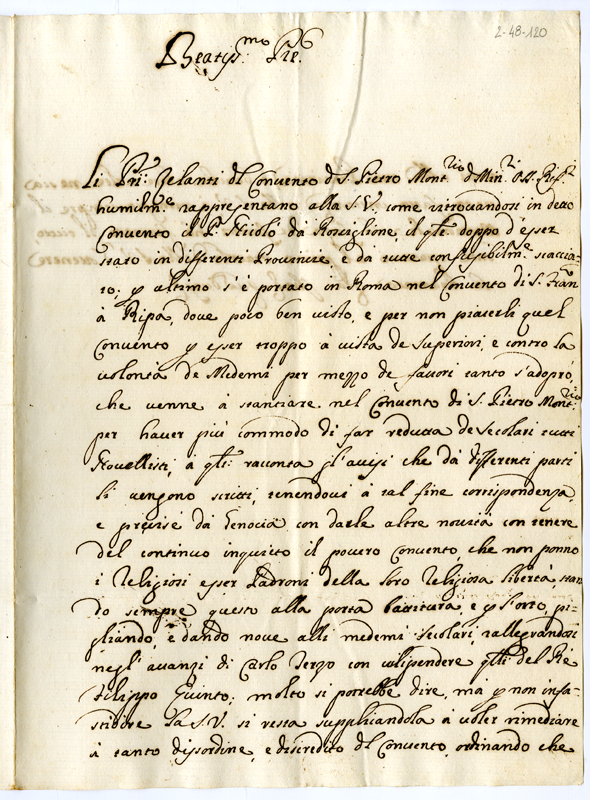 2-48-120
Beatiss.mo P̃re.
Li P̃ri: Zelanti dl Convento di S. Pietro Mont.rio d Min.ri Oss. Rif.ti
humilm.e rappresentano alla S.V. come ritrovandosi in detto
Convento il P. Nicolò da Ronciglione, il qle doppo d'esser
stato in differenti Provincie, e da tutte compassibilm.e scaccia-
to; p ultimo s'è portato in Roma nel Convento di S. Fran.co
à Ripa, dove poco ben visto, e per non piacerli quel
Convento p esser troppo à vista de Superiori, e contro la
volontà de Medemi per mezzo de favori tanto s'adoprò,
che venne à stantiare nel Convento di S. Pietro Mont.rio
per haver più commodo di far reducta de Secolari tutti
Novellisti, à qli racconta gl'avisi che da differenti parti
li vengono scritti, tenendovi à tal fine corrispondenza,
e precise da Genova con darle altre novità con tenere
del continuo inquieto il povero Convento, che non ponno
i Religiosi esser Padroni della loro Religiosa libertà, stan
do sempre questo alla porta battitura, e p l'orto, pi-
gliando, e dando nove alli medemi Secolari, rallegrandosi
negl'avanzi di Carlo Terzo con vilipendere qlli del Rè
Filippo Quinto; molto si potrebbe dire, mà p non infa-
stidire la S.V. si resta supplicandola à voler rimediare
à tanto dissordine, e discredito dl Convento, ordinando che